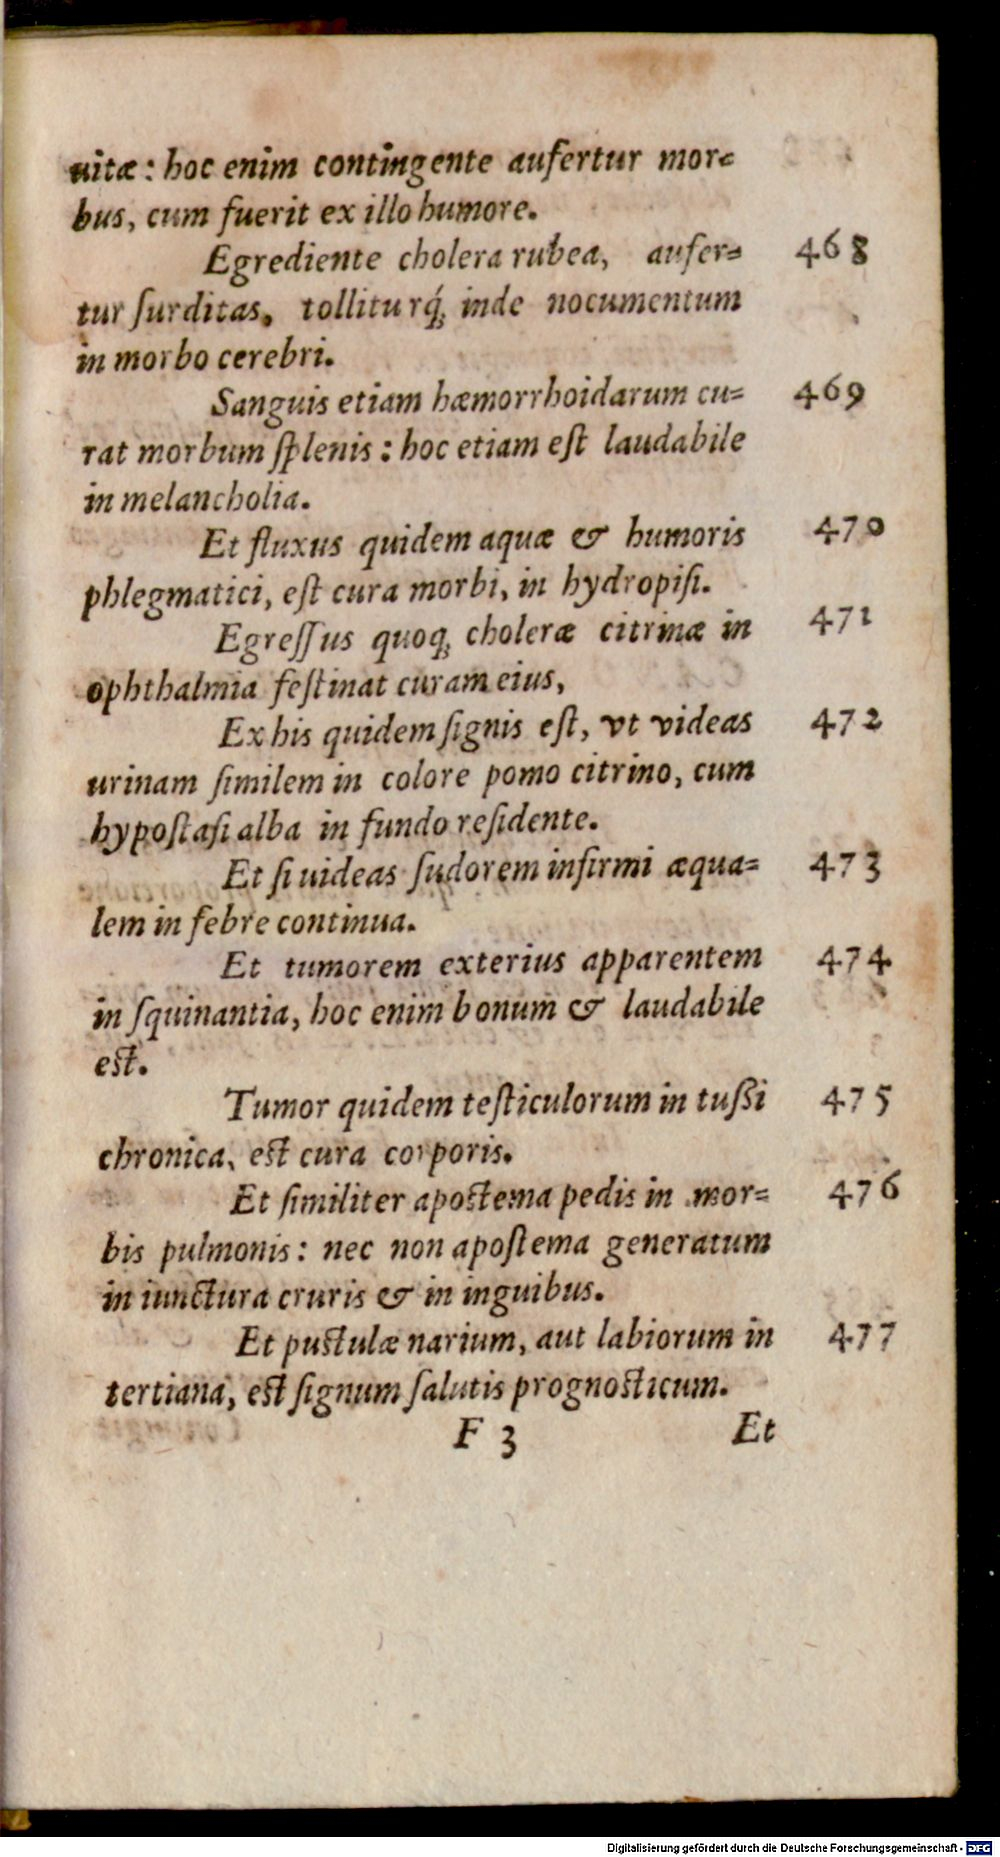 uitæ: hoc enim contingente aufertur mor=
bus, cum fuerit ex illo humore.
Egrediente cholera rubea, aufer= 468
tur ſurditas, tolliturq́ꝫ inde nocumentum
in morbo cerebri.
Sanguis etiam hæmorrhoidarum cu= 469
rat morbum ſplenis: hoc etiam eſt laudabile
in melancholia.
Et fluxus quidem aquæ & humoris 470
phlegmatici, eſt cura morbi, in hydropiſi.
Egreſſus quoqꝫ choleræ citrinæ in 471
ophthalmia feſtinat curam eius,
Ex his quidem ſignis eſt, vt videas 472
urinam ſimilem in colore pomo citrino, cum
hypoſtaſi alba in fundo reſidente.
Et ſi uideas ſudorem infirmi æqua= 473
lem in febre continua.
Et tumorem exterius apparentem 474
in ſquinantia, hoc enim bonum & laudabile
eſt.
Tumor quidem teſticulorum in tußi 475
chronica, eſt cura corporis.
Et ſimiliter apoſtema pedis in mor= 476
bis pulmonis: nec non apoſtema generatum
in iunctura cruris & in inguibus.
Et puſtulæ narium, aut labiorum in 477
tertiana, eſt ſignum ſalutis prognoſticum.
F 3 Et
Digitalisierung gefördert durch die Deutsche Forschungsgemeinschaft - DFG